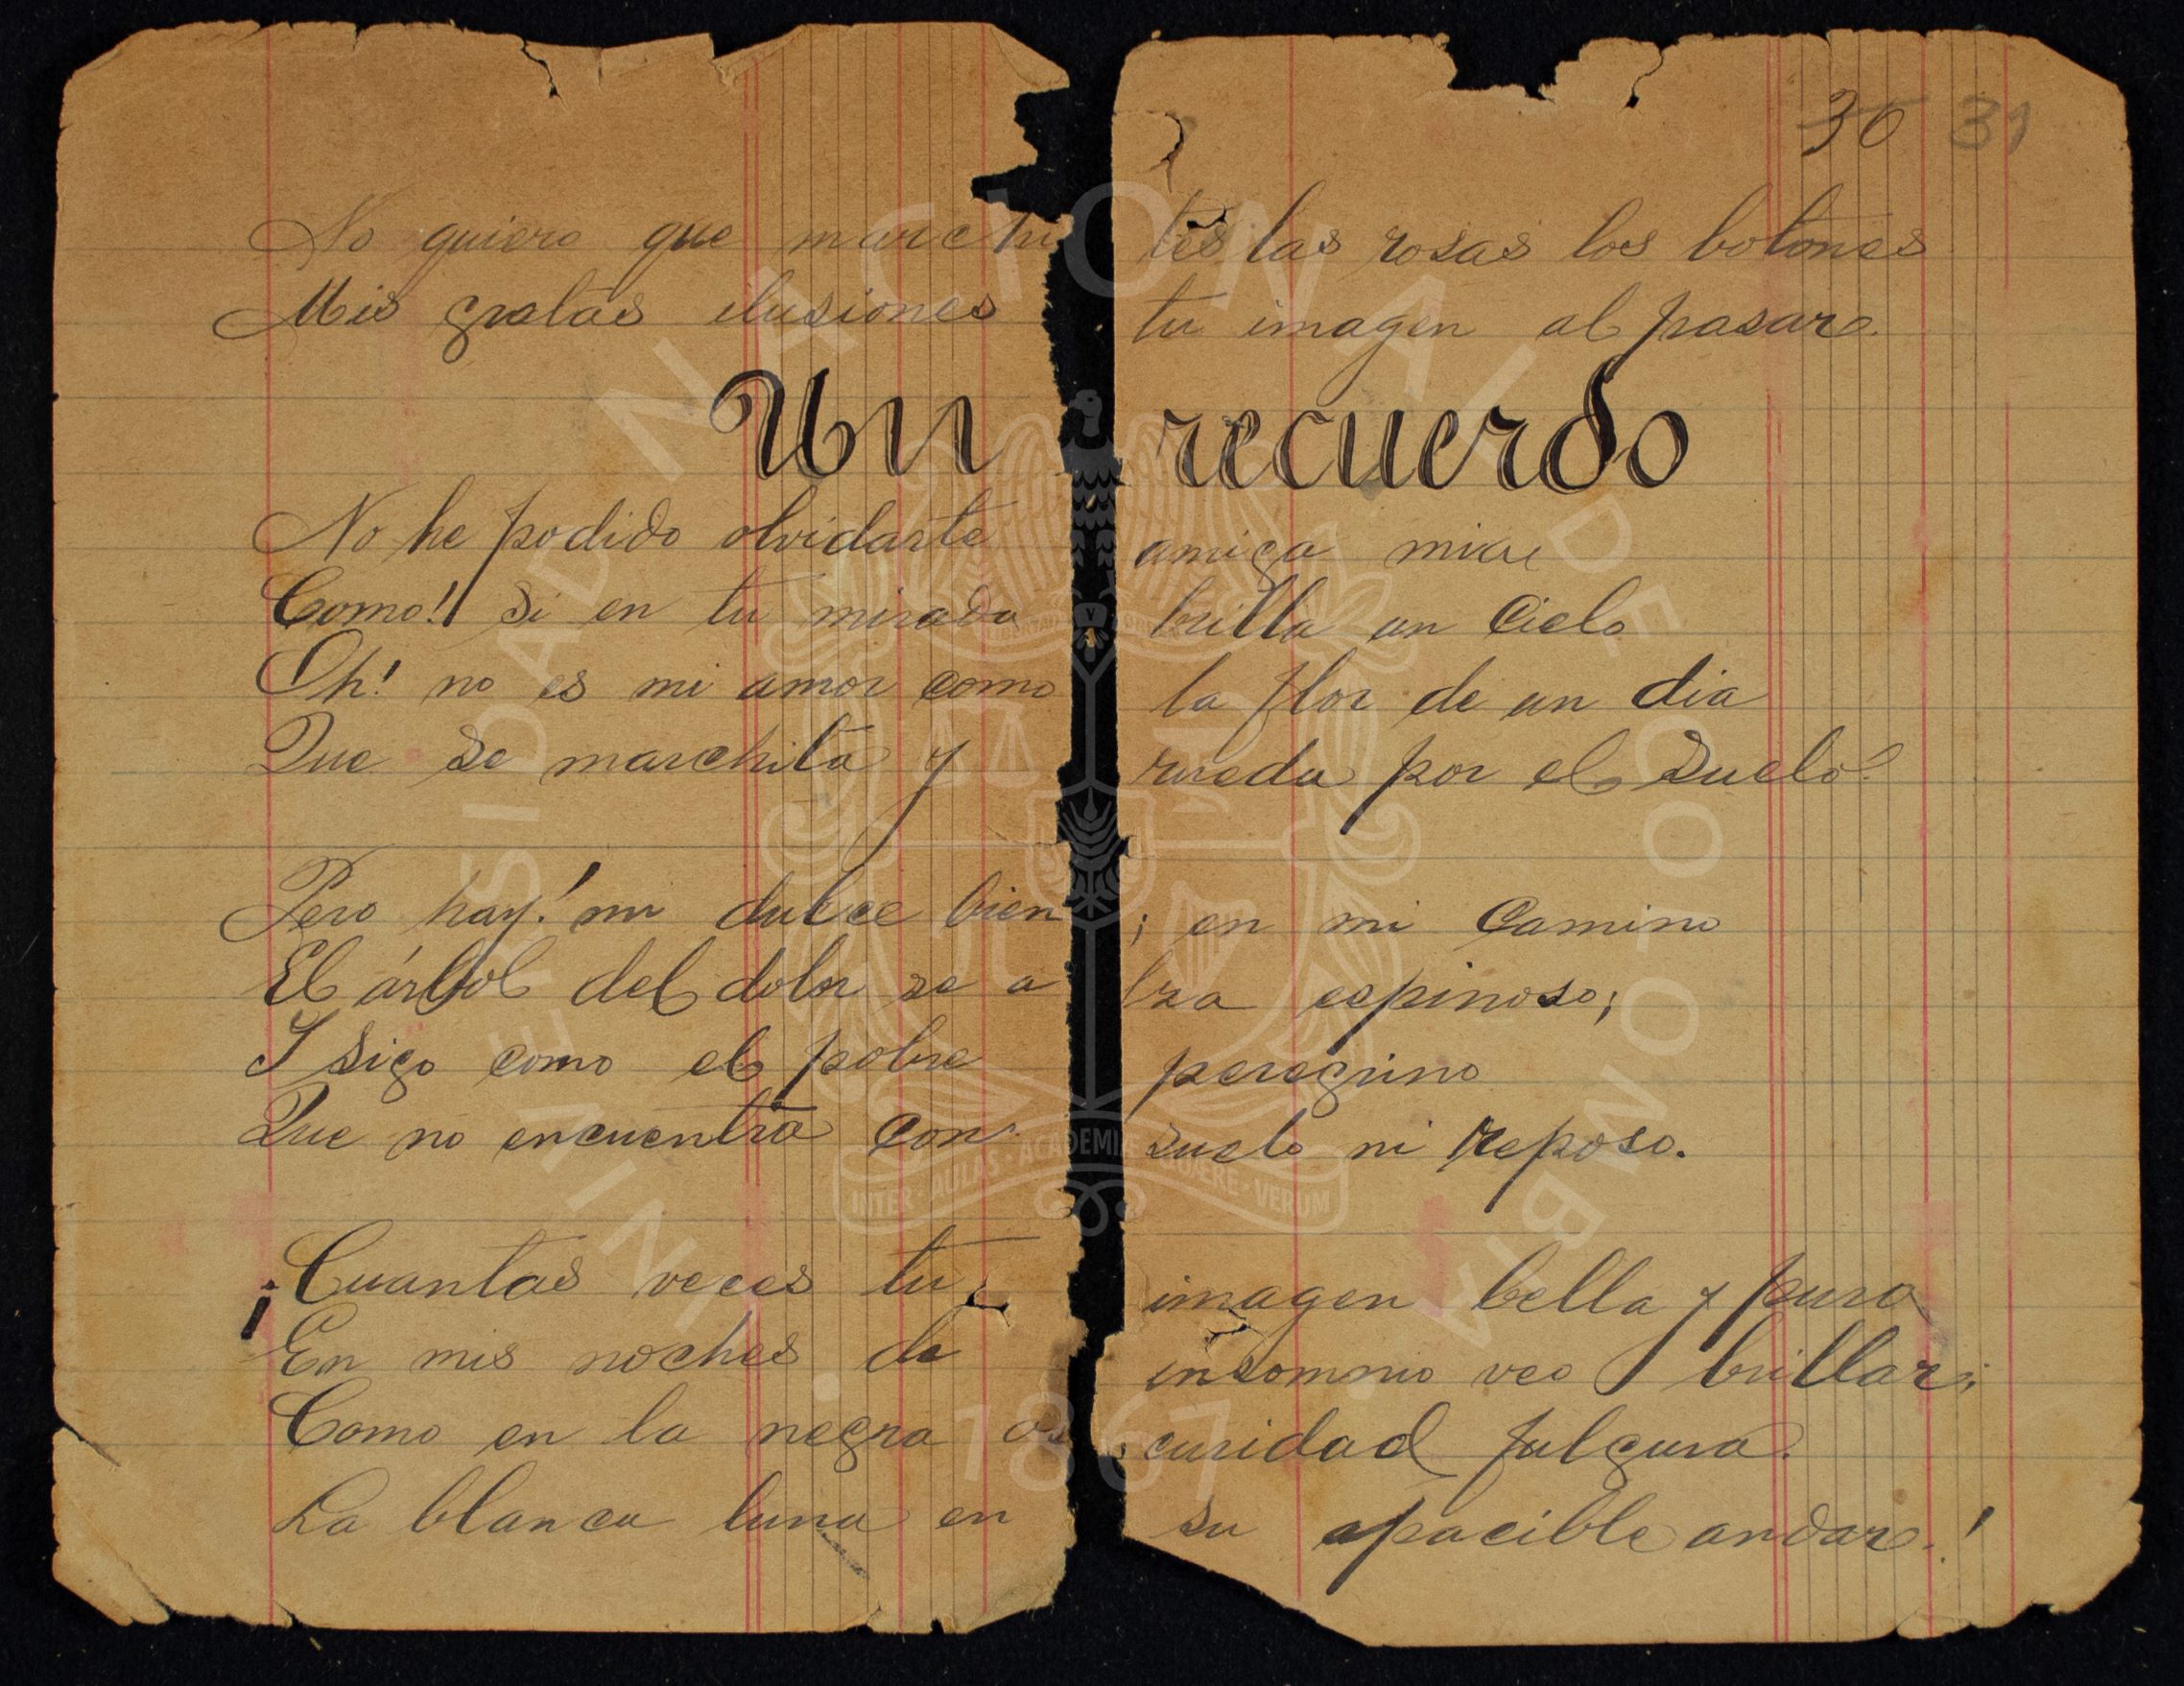 36 31
No quiero que marchites las rosas los botones
Mis gratas ilusiones tu imagen al pasar.
Un recuerdo
No he podido olvidarte amiga mia
Como! si en tu mirada brilla un Cielo
Oh! no es mi amor como la flor de un dia
Que se marchita y rueda por el suelo.
Pero hay! mi dulce bien; en mi Camino
El árbol del dolor se alza espinoso;
I sigo como el pobre peregrino
Que no encuentra consuelo ni reposo.
¡Cuantas veces tu imagen bella y pura
En mis noches de insomnio veo brillar;
Como en la negra oscuridad fulgura.
La blanca luna en su apacible andar.!
UNIVERSIDAD NACIONAL DE COLOMBIA
INTER · AULAS · ACADEMIÆ · QUÆRE · VERUM
1867